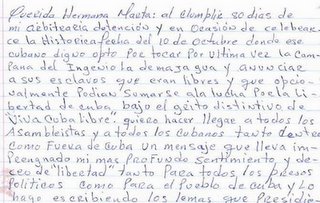 Querida Hermana Marta: al Cumplir 80 dias de
mi Arbitraria detención y en Ocasión de celebrar
ce la Historica fecha del 10 de Octubre donde ese
cubano digno opto Por tocar por ultima vez la Cam
pana del Ingenio la demajagua y anunciar
a sus esclavos que eran libres y que opcio-
nalmente Podian Sumarse a la lucha Por la Li-
bertad de Cuba, bajo el grito distintivo de
"Viva Cuba libre", quiero hacer llegar a todos los
Asambleistas y a todos los Cubanos tanto dentro
Como Fuera de Cuba un mensaje que lleva im-
Preganado mi mas Profundo Sentimiento, y de-
ceo de "libertad" tanto Para todos los Presos
Politicos Como Para el Pueblo de Cuba y Lo
hago escribiendo los lemas que Presidie